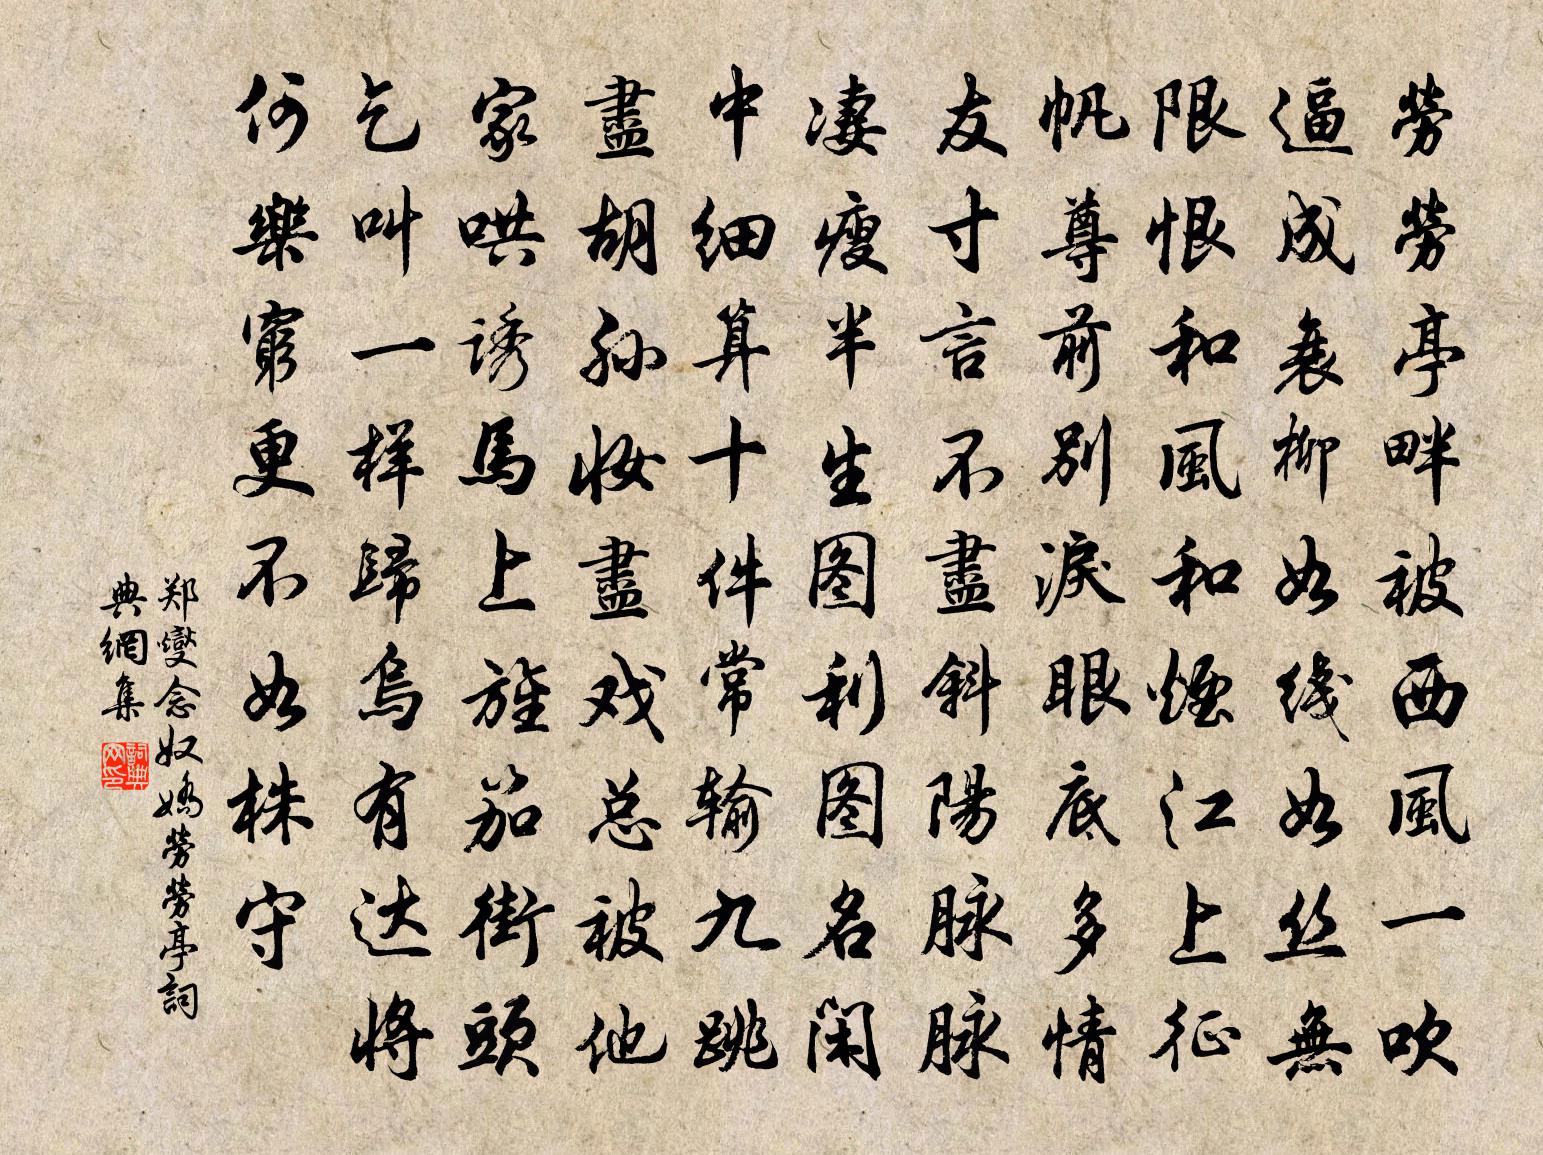 勞勞亭畔被西風一吹
逼成衰柳如线如丝無
限恨和風和煙江上征
帆尊前别淚眼底多情
友寸言不盡斜陽脉脉
凄瘦半生图利图名闲
中细算十件常输九跳
盡胡孙妆盡戏总被他
家哄誘馬上旌笳街頭
乞叫一样歸烏有达將
何樂窮更不如株守
郑燮念奴嬌勞勞亭詞
典網集
詞典